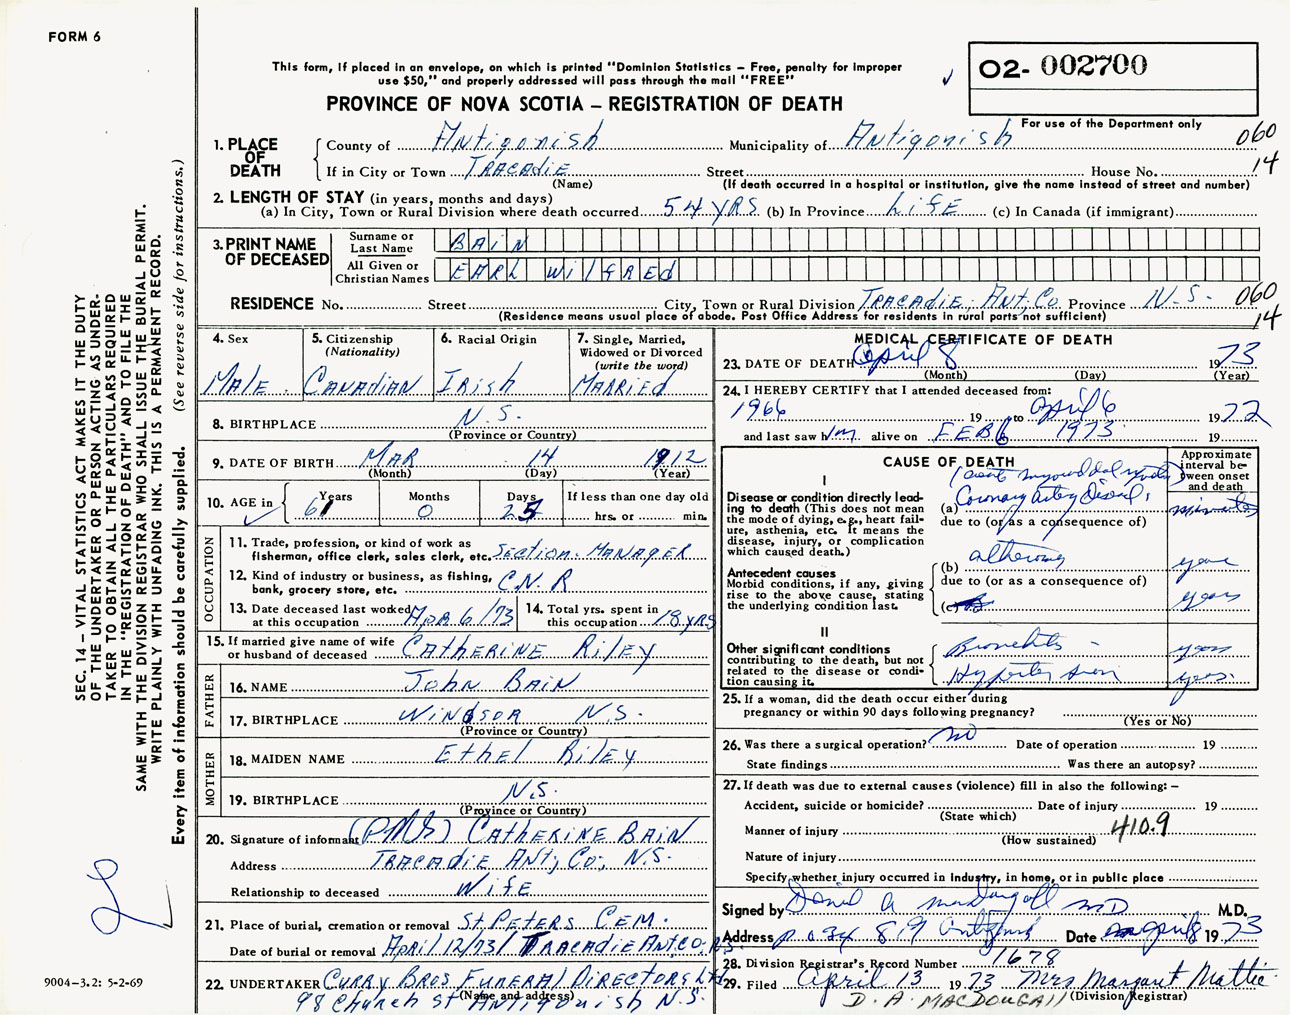 FORM 6
This form, if placed in an envelope, on which is printed "Dominion Statistics – Free, penalty for improper
use $50," and properly addressed will pass through the mail "FREE"
PROVINCE OF NOVA SCOTIA – REGISTRATION OF DEATH
02- 002700
For use of the Department only
060
14
1. PLACE OF DEATH
County of Antigonish Municipality of Antigonish
If in City or Town TRACADIE Street House No.
(Name) (If death occurred in a hospital or institution, give the name instead of street and number)
2. LENGTH OF STAY (in years, months and days)
(a) In City, Town or Rural Division where death occurred 54 YRS (b) In Province LIFE (c) In Canada (if immigrant)
3. PRINT NAME OF DECEASED
Surname or Last Name BAIN
All Given or Christian Names EARL WILFRED
RESIDENCE No. Street City, Town or Rural Division TRACADIE, ANT. CO Province N.S. 060
(Residence means usual place of abode. Post Office Address for residents in rural parts not sufficient) 14
4. Sex
MALE
5. Citizenship
(Nationality)
CANADIAN
6. Racial Origin
IRISH
7. Single, Married,
Widowed or Divorced
(write the word)
MARRIED
8. BIRTHPLACE N.S.
(Province or Country)
9. DATE OF BIRTH MAR 14 1912
(Month) (Day) (Year)
10. AGE in
Years 61
Months 0
Days 25
If less than one day old
hrs. or min.
OCCUPATION
11. Trade, profession, or kind of work as
fisherman, office clerk, sales clerk, etc. SECTION. MANAGER
12. Kind of industry or business, as fishing,
bank, grocery store, etc. C.N.R
13. Date deceased last worked
at this occupation APR 6/73
14. Total yrs. spent in
this occupation 18 YRS
15. If married give name of wife
or husband of deceased CATHERINE RILEY
FATHER
16. NAME JOHN BAIN
17. BIRTHPLACE WINDSOR N.S.
(Province or Country)
MOTHER
18. MAIDEN NAME ETHEL RILEY
19. BIRTHPLACE N.S.
(Province or Country)
20. Signature of informant CATHERINE BAIN
Address TRACADIE ANT, CO, N.S.
Relationship to deceased WIFE
21. Place of burial, cremation or removal ST PETERS CEM.
Date of burial or removal APRIL 12/73 / TRACADIE ANT.CO. N.S.
22. UNDERTAKER CURRY BROS FUNERAL DIRECTORS LTD
(Name and address)
98 Church St ANTIGONISH N.S.
MEDICAL CERTIFICATE OF DEATH
23. DATE OF DEATH April 8 1973
(Month) (Day) (Year)
24. I HEREBY CERTIFY that I attended deceased from:
1966 19 to April 6 1972
and last saw him alive on FEB 6 1973 19
CAUSE OF DEATH
Approximate
interval be-
tween onset
and death
I
Disease or condition directly lead-
ing to death (This does not
mean the mode of dying, e.g., heart fail-
ure, asthenia, etc. It means the
disease, injury, or complication
which caused death.)
(a) Coronary artery disease, minutes
due to (or as a consequence of)
Antecedent causes
Morbid conditions, if any, giving
rise to the above cause, stating
the underlying condition last.
(b) years
due to (or as a consequence of)
(c) years
II
Other significant conditions
contributing to the death, but not
related to the disease or condi-
tion causing it.
Bronchitis – years
Hypertension years.
25. If a woman, did the death occur either during
pregnancy or within 90 days following pregnancy?
(Yes or No)
26. Was there a surgical operation? no Date of operation 19
State findings Was there an autopsy?
27. If death was due to external causes (violence) fill in also the following: –
Accident, suicide or homicide? Date of injury 19
(State which)
Manner of injury 410.9
(How sustained)
Nature of injury
Specify whether injury occurred in Industry, in home, or in public place
Signed by Daniel A MacDougall MD M.D.
Address P.O. Box 819 Antigonish Date April 8 1973
28. Division Registrar's Record Number 1678
29. Filed April 13 1973 Mrs Margaret Mattie
(Division Registrar)
D. A. MACDOUGALL
SEC. 14 – VITAL STATISTICS ACT MAKES IT THE DUTY
OF THE UNDERTAKER OR PERSON ACTING AS UNDER-
TAKER TO OBTAIN ALL THE PARTICULARS REQUIRED
IN THE "REGISTRATION OF DEATH" AND TO FILE THE
SAME WITH THE DIVISION REGISTRAR WHO SHALL ISSUE THE BURIAL PERMIT.
WRITE PLAINLY WITH UNFADING INK. THIS IS A PERMANENT RECORD.
Every item of information should be carefully supplied. (See reverse side for instructions.)
9004–3.2: 5-2-69